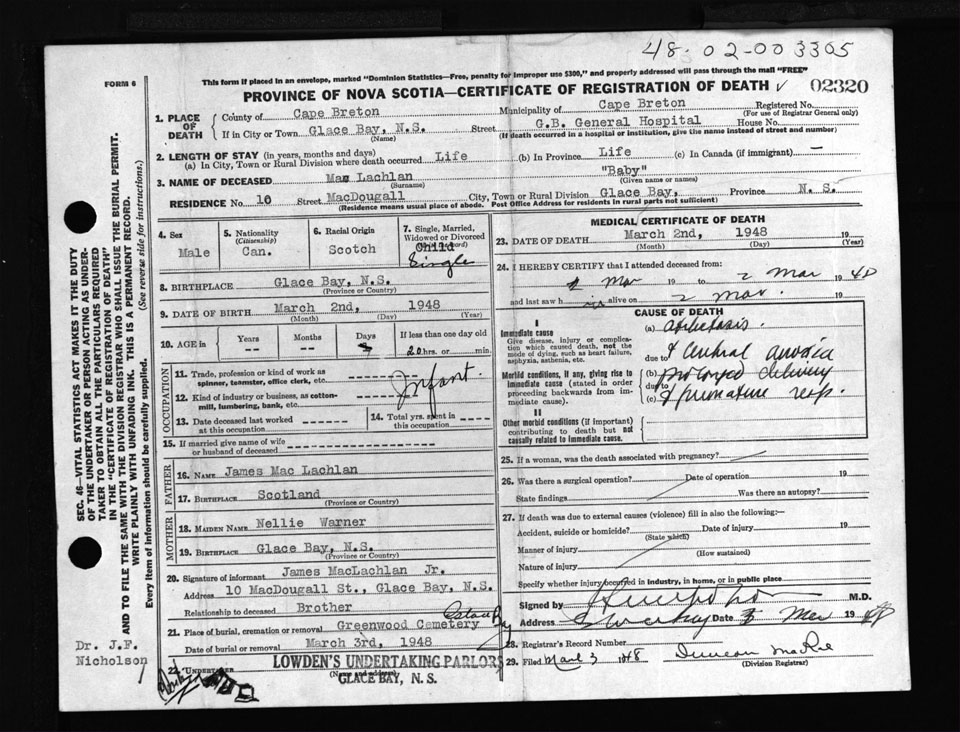 48-02-003305
FORM 6
This form if placed in an envelope, marked "Dominion Statistics—Free, penalty for improper use $300," and properly addressed will pass through the mail "FREE"
PROVINCE OF NOVA SCOTIA—CERTIFICATE OF REGISTRATION OF DEATH ✓ 02320
1. PLACE OF DEATH
County of Cape Breton Municipality of Cape Breton Registered No.
(For use of Registrar General only)
If in City or Town Glace Bay, N.S. Street G.B. General Hospital House No.
(Name) (If death occurred in a hospital or institution, give the name instead of street and number)
2. LENGTH OF STAY (in years, months and days)
(a) In City, Town or Rural Division where death occurred Life (b) In Province Life (c) In Canada (if immigrant) —
3. NAME OF DECEASED Mac Lachlan "Baby"
(Surname) (Given name or names)
RESIDENCE No. 10 Street MacDougall City, Town or Rural Division Glace Bay, Province N. S.
(Residence means usual place of abode. Post Office Address for residents in rural parts not sufficient)
4. Sex
Male
5. Nationality
(Citizenship)
Can.
6. Racial Origin
Scotch
7. Single, Married, Widowed or Divorced
Child
Single
8. BIRTHPLACE Glace Bay, N.S.
(Province or Country)
9. DATE OF BIRTH March 2nd, 1948
(Month) (Day) (Year)
10. AGE in
Years
--
Months
--
Days
If less than one day old
20 hrs. or min.
OCCUPATION
11. Trade, profession or kind of work as spinner, teamster, office clerk, etc.
Infant.
12. Kind of industry or business, as cotton-mill, lumbering, bank, etc.
13. Date deceased last worked at this occupation
14. Total yrs. spent in this occupation
15. If married give name of wife or husband of deceased
FATHER
16. NAME James Mac Lachlan
17. BIRTHPLACE Scotland
(Province or Country)
MOTHER
18. MAIDEN NAME Nellie Warner
19. BIRTHPLACE Glace Bay, N.S.
(Province or Country)
20. Signature of informant James MacLachlan Jr.
Address 10 MacDougall St., Glace Bay, N.S.
Relationship to deceased Brother
21. Place of burial, cremation or removal Greenwood Cemetery
Date of burial or removal March 3rd, 1948
22. UNDERTAKER
LOWDEN'S UNDERTAKING PARLORS
(Name and address)
GLACE BAY, N. S.
MEDICAL CERTIFICATE OF DEATH
23. DATE OF DEATH March 2nd, 1948 19
(Month) (Day) (Year)
24. I HEREBY CERTIFY that I attended deceased from:
2 Mar 19 to 2 Mar 1948
and last saw h im alive on 2 Mar. 19
CAUSE OF DEATH
I
Immediate cause
Give disease, injury or complication which caused death, not the mode of dying, such as heart failure, asphyxia, asthenia, etc.
(a) atelectasis.
due to & central anoxia
Morbid conditions, if any, giving rise to immediate cause (stated in order proceeding backwards from immediate cause).
(b) prolonged delivery
due to
(c) & premature resp.
II
Other morbid conditions (if important) contributing to death but not causally related to immediate cause.
25. If a woman, was the death associated with pregnancy?
26. Was there a surgical operation? Date of operation 19
State findings Was there an autopsy?
27. If death was due to external causes (violence) fill in also the following:—
Accident, suicide or homicide? Date of injury 19
(State which)
Manner of injury
(How sustained)
Nature of injury
Specify whether injury occurred in industry, in home, or in public place
Signed by M.D.
Address Date 3 Mar 1948
28. Registrar's Record Number
29. Filed March 3 1948 Duncan MacRae
(Division Registrar)
SEC. 46—VITAL STATISTICS ACT MAKES IT THE DUTY
OF THE UNDERTAKER OR PERSON ACTING AS UNDER-
TAKER TO OBTAIN ALL THE PARTICULARS REQUIRED
IN THE "CERTIFICATE OF REGISTRATION OF DEATH"
AND TO FILE THE SAME WITH THE DIVISION REGISTRAR WHO SHALL ISSUE THE BURIAL PERMIT.
WRITE PLAINLY WITH UNFADING INK. THIS IS A PERMANENT RECORD.
Every item of information should be carefully supplied. (See reverse side for instructions.)
Dr. J.F.
Nicholson